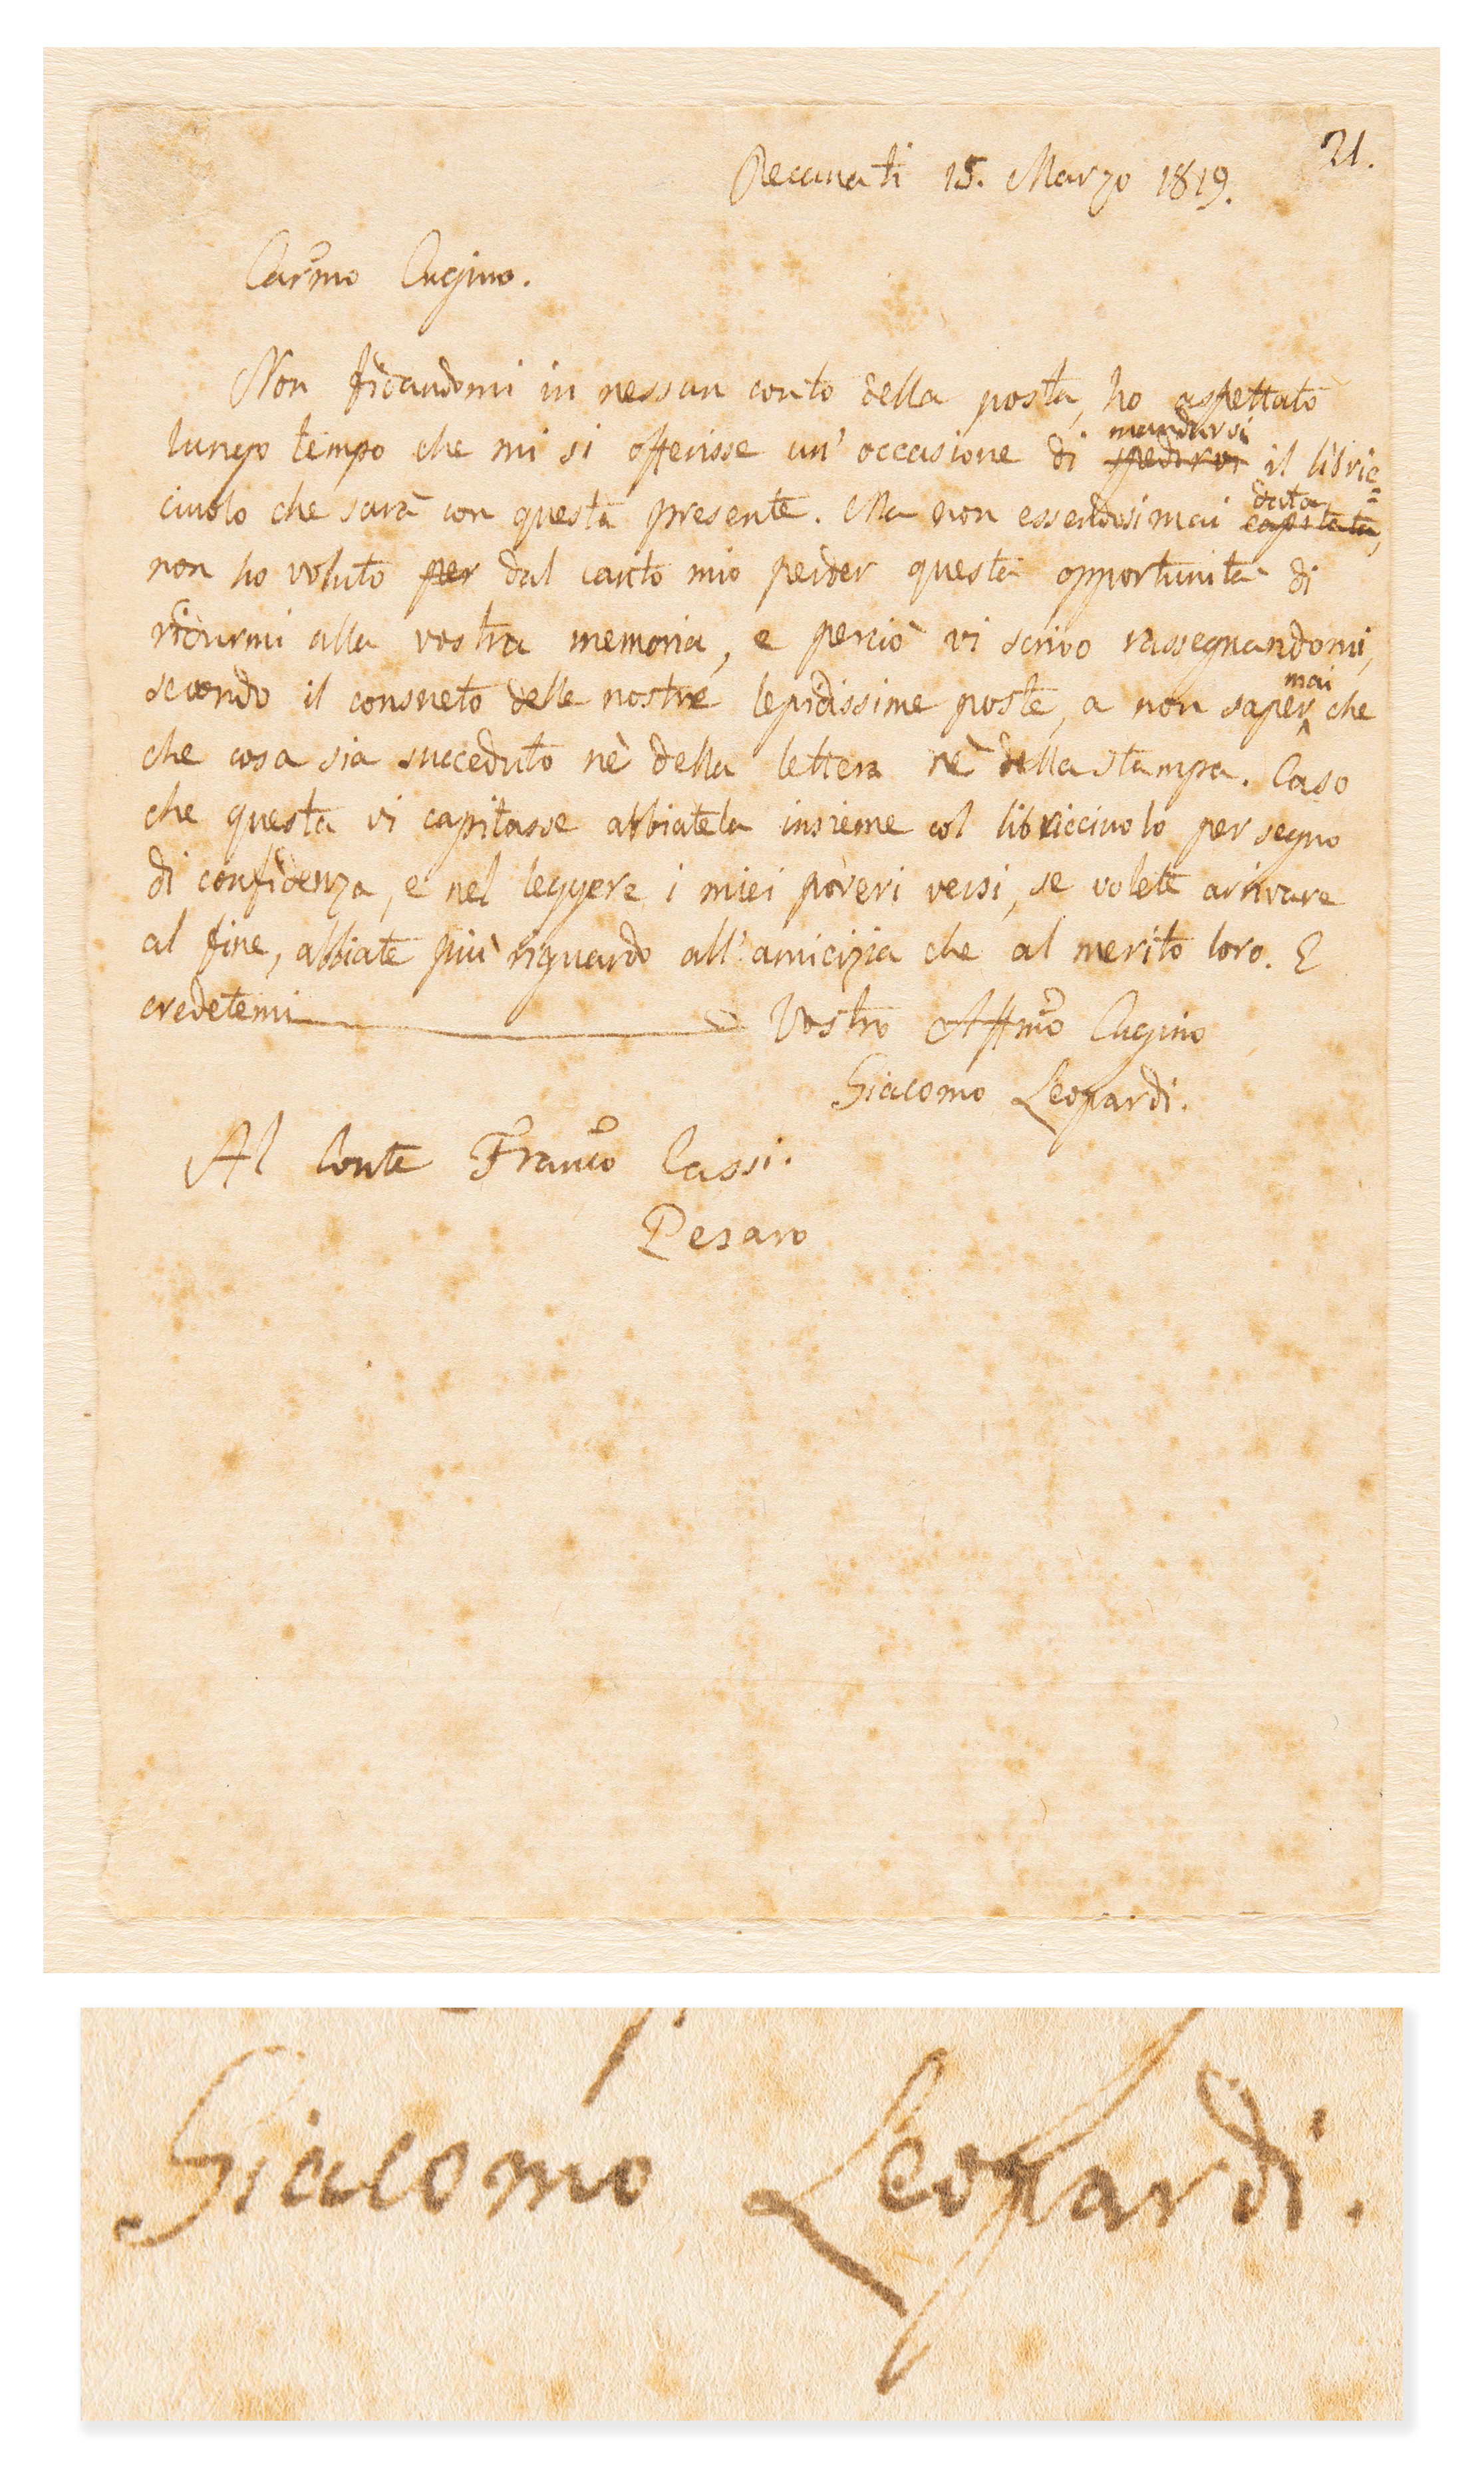 21.
Recanati 15. Marzo 1819.
Carmo Cugino.
Non fidandomi in nessun conto della posta, ho aspettato
lungo tempo che mi si offerisse un' occasione di spedirvi mandarvi il libric=
ciuolo che sarà con questa presente. Ma non essendosi mai capitata data,
non ho voluto per dal canto mio perder questa opportunità di
ridurmi alla vostra memoria, e perciò vi scrivo rassegnandomi,
secondo il consueto delle nostre lepidissime poste, a non saper mai che
che cosa sia succeduto nè della lettera nè della stampa. Caso
che questa vi capitasse abbiatela insieme col libricciuolo per segno
di confidenza, e nel leggere i miei poveri versi, se volete arrivare
al fine, abbiate più riguardo all' amicizia che al merito loro. E
credetemi Vostro Affmo Cugino
Giacomo Leopardi.
Al Conte Franco Cassi.
Pesaro
Giacomo Leopardi.